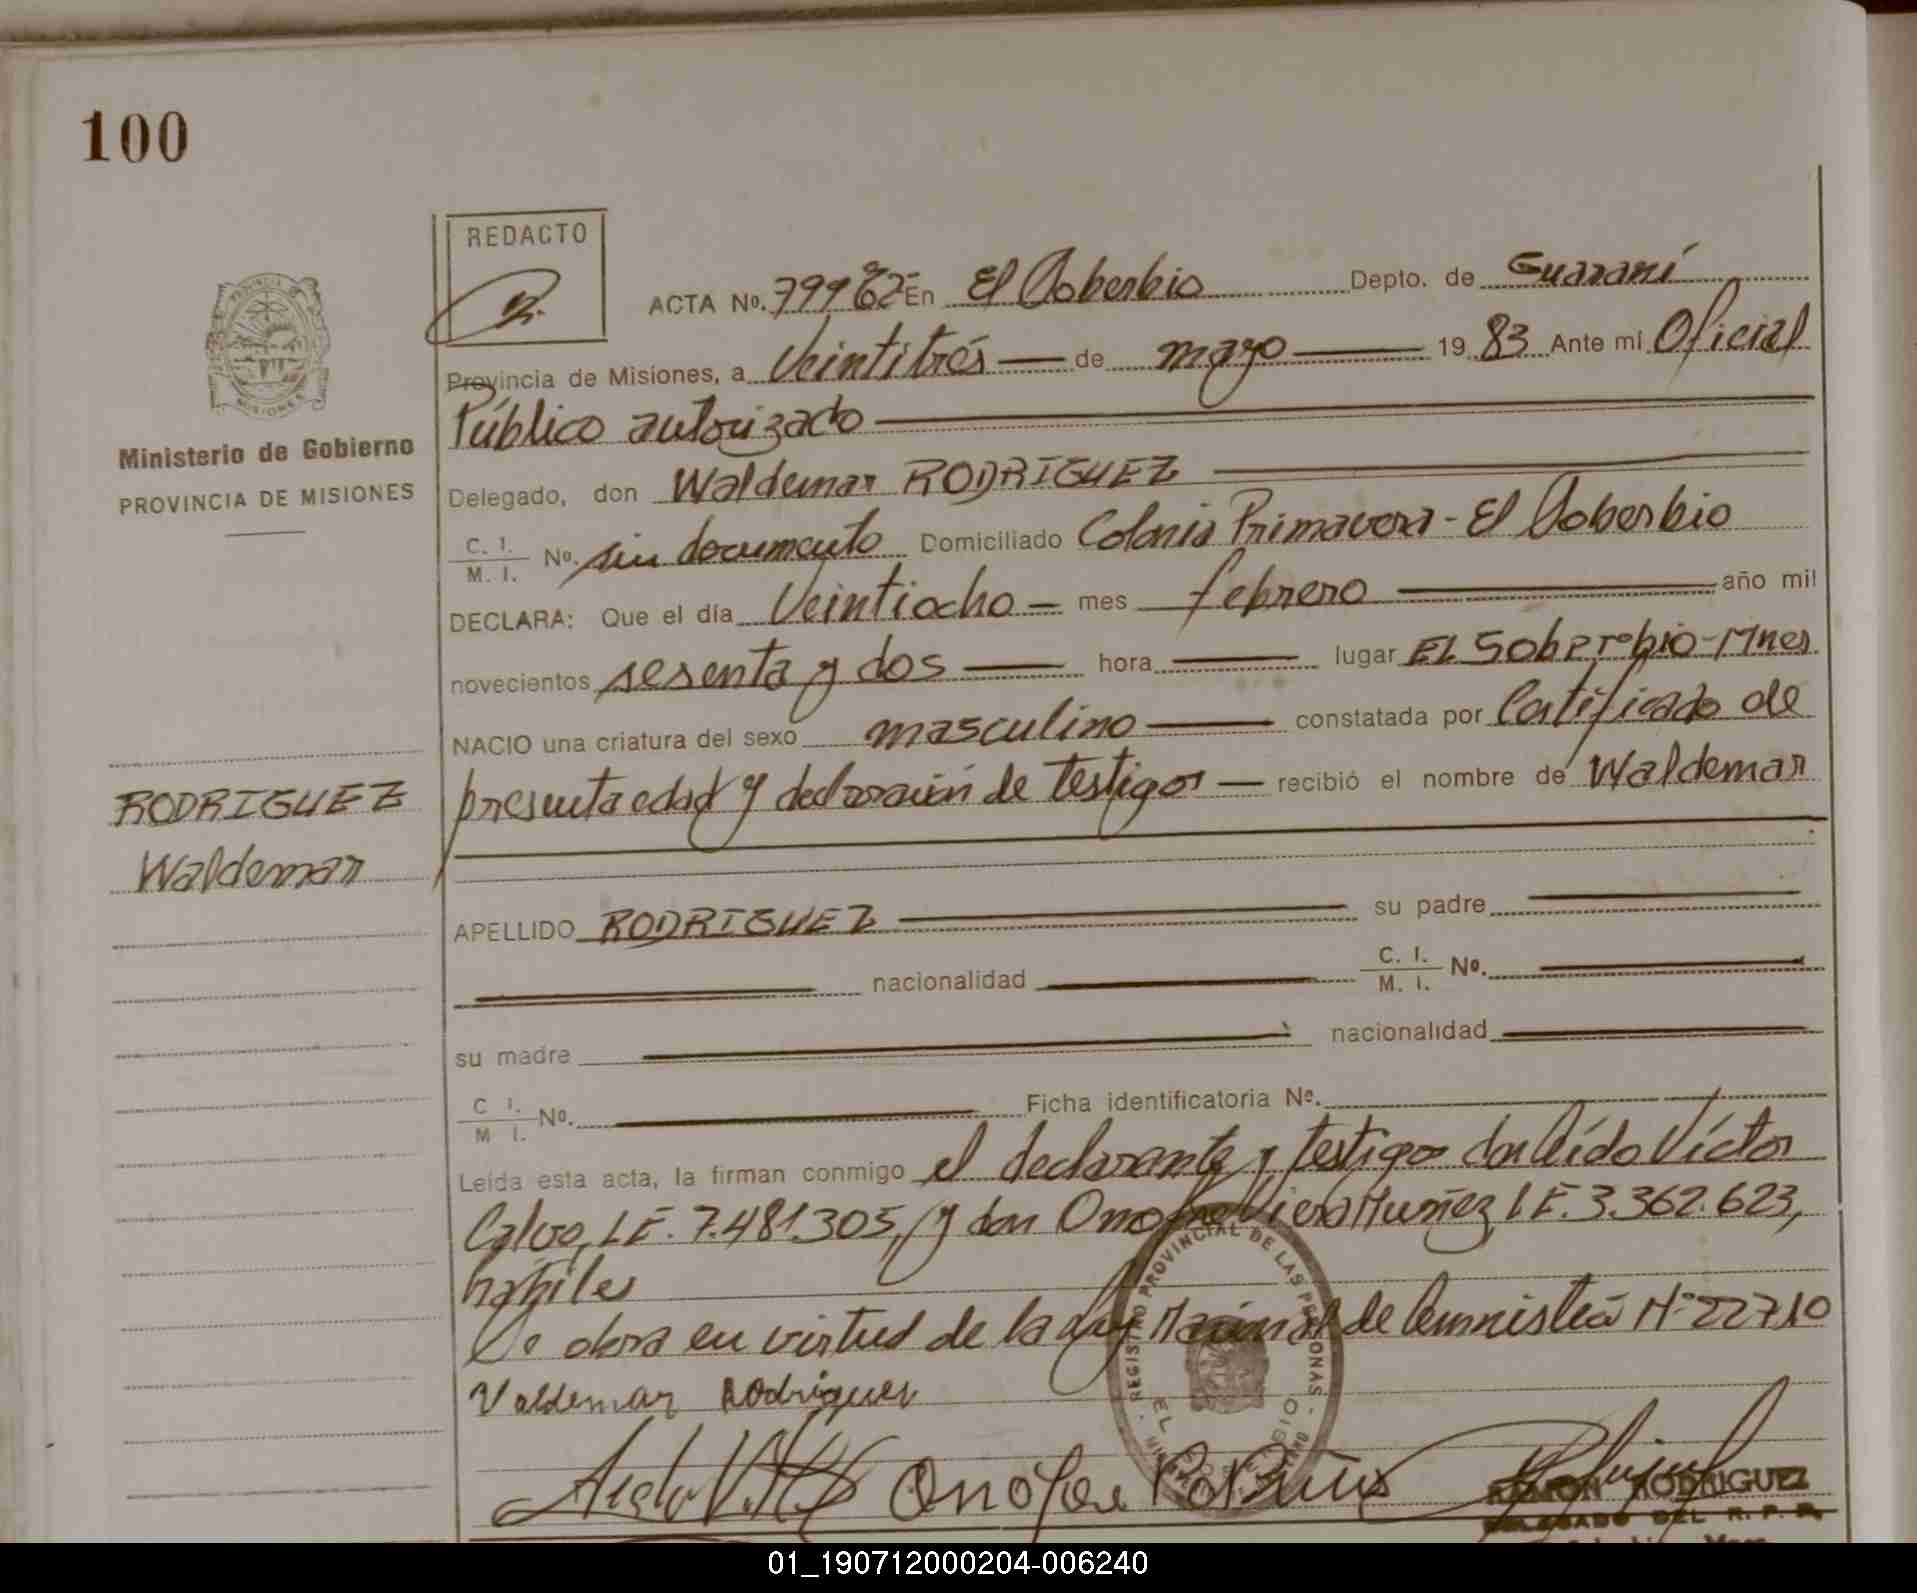 100
REDACTO
ACTA No. En El Soberbio Depto. de Guaraní
Provincia de Misiones, a Veintitrés de mayo 19 83 Ante mi Oficial
Público autorizado
Ministerio de Gobierno
PROVINCIA DE MISIONES
Delegado, don Waldemar RODRIGUEZ
C. I. / M. I. No. sin documento Domiciliado Colonia Primavera - El Soberbio
DECLARA: Que el día Veintiocho mes febrero año mil
novecientos sesenta y dos hora lugar EL Soberbio - Mnes
NACIO una criatura del sexo masculino constatada por Certificado de
presunta edad y declaración de testigos recibió el nombre de Waldemar
RODRIGUEZ
Waldemar
APELLIDO RODRIGUEZ su padre
nacionalidad C. I. / M. I. No.
su madre nacionalidad
C I. / M I. No. Ficha identificatoria No.
Leída esta acta, la firman conmigo el declarante y testigos don Víctor
Calvo, L.E. 7.481.305, y don Onofre Viera Muñez L.E. 3.362.623,
hábiles
obra en virtud de la Ley Nacional de N° 22710
Valdemar Rodriguez
REGISTRO PROVINCIAL DE LAS PERSONAS
Onofre
RAMON RODRIGUEZ
DELEGADO DEL R. P. P.
01_190712000204-006240